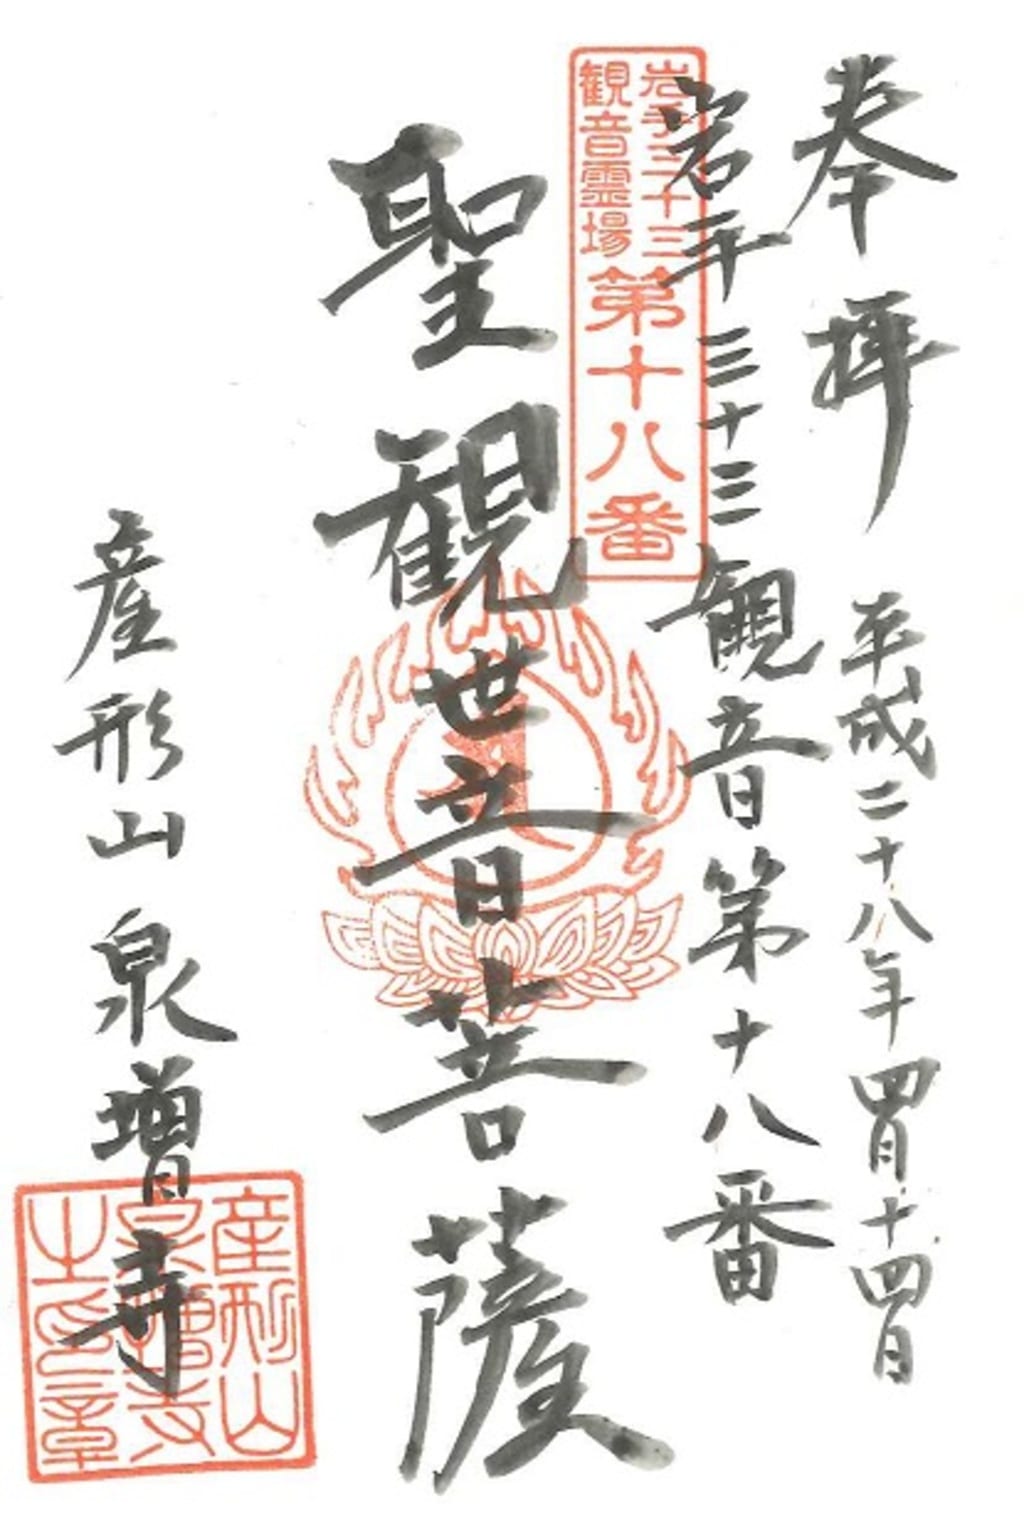 奉拝
平成二十八年四月十四日
岩手三十三観音第十八番
岩手三十三
観音霊場
第十八番
聖観世音菩薩
産形山泉増寺
産形山
泉増寺
之印章